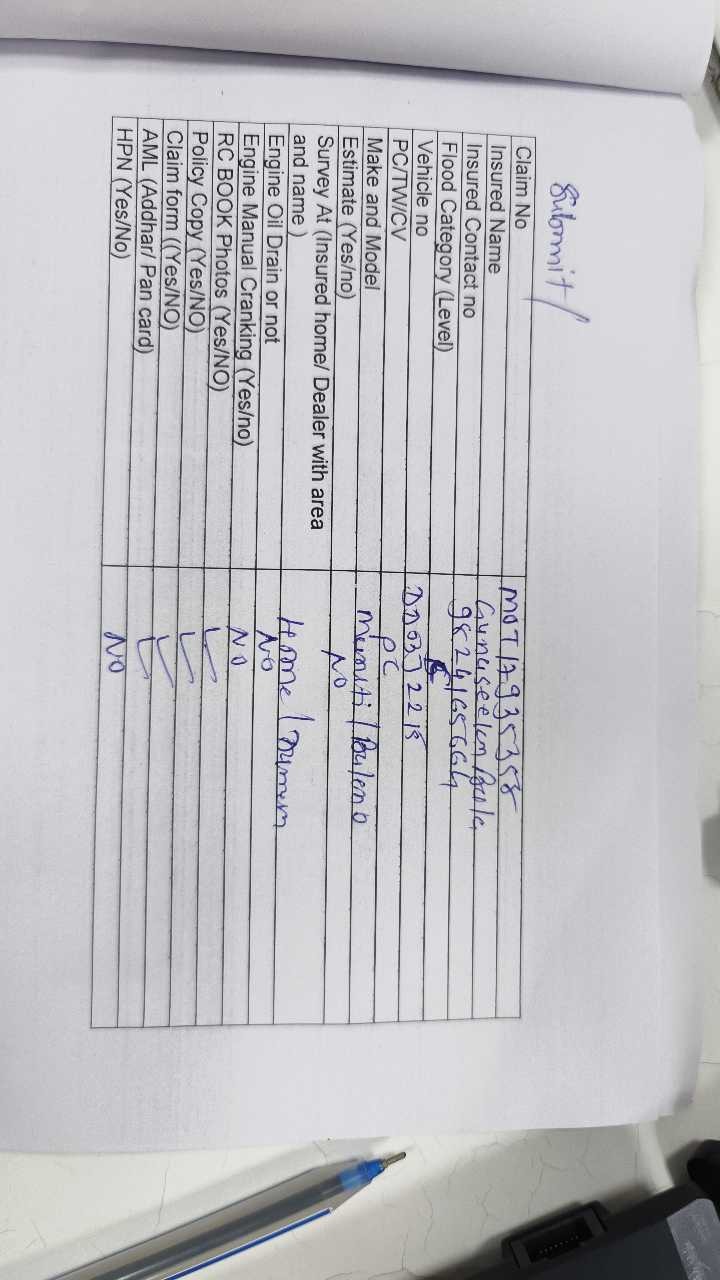 Submit/
Claim No MOT17935358
Insured Name Gunaseelan Bala
Insured Contact no 9824165664
Flood Category (Level)
Vehicle no DD03J2215
PC/TW/CV PC
Make and Model Maruti / Baleno
Estimate (Yes/no) NO
Survey At (Insured home/ Dealer with area
and name ) Home / Damam
Engine Oil Drain or not NO
Engine Manual Cranking (Yes/no) NO
RC BOOK Photos (Yes/NO) ✓
Policy Copy (Yes/NO) ✓
Claim form ((Yes/NO) ✓
AML (Addhar/ Pan card) ✓
HPN (Yes/No) NO